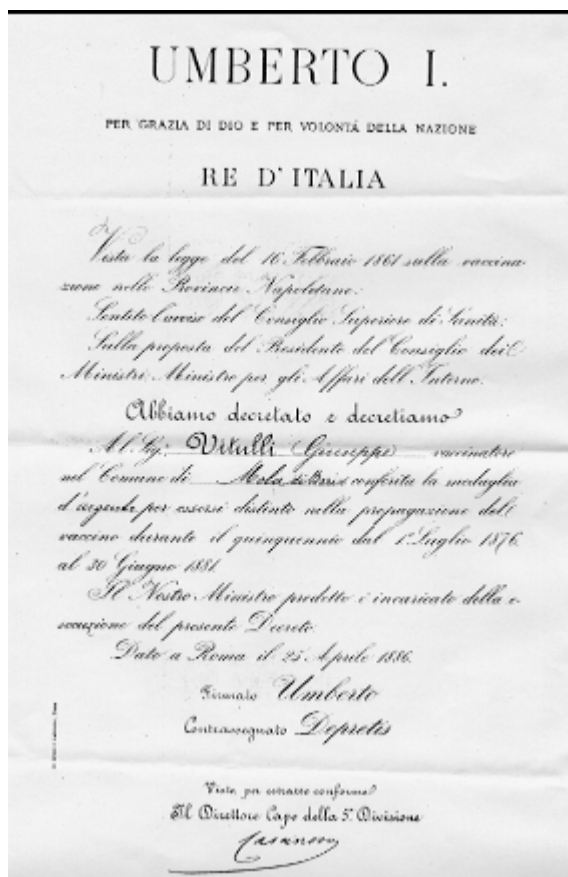 UMBERTO I.
PER GRAZIA DI DIO E PER VOLONTÀ DELLA NAZIONE
RE D'ITALIA
Vista la legge del 16 Febbraio 1861 sulla vaccina-
zione nelle Provincie Napoletane:
Sentito l'avviso del Consiglio Superiore di Sanità:
Sulla proposta del Presidente del Consiglio dei
Ministri, Ministro per gli Affari dell'Interno.
Abbiamo decretato e decretiamo
Al Sig. Vitulli Giuseppe vaccinatore
nel Comune di Mola di Bari è conferita la medaglia
d'argento per essersi distinto nella propagazione del
vaccino durante il quinquennio dal 1º Luglio 1876
al 30 Giugno 1881.
Il Nostro Ministro predetto è incaricato della e-
secuzione del presente Decreto.
Dato a Roma il 25 Aprile 1886.
Firmato Umberto
Contrassegnato Depretis
Visto, per estratto conforme
Il Direttore Capo della 5ª Divisione